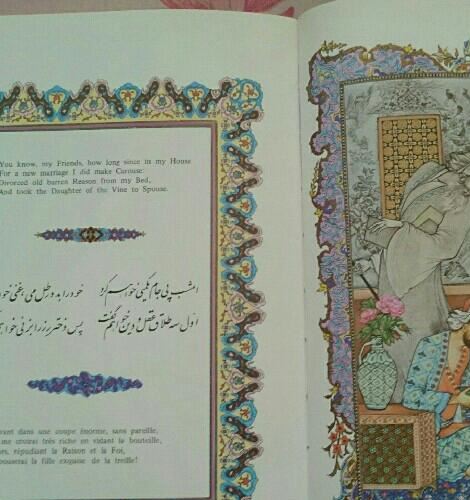 You know, my Friends, how long since in my House
For a new marriage I did make Carouse:
Divorced old barren Reason from my Bed,
And took the Daughter of the Vine to Spouse.
امشب پی جام یکمنی خواهم کرد خود را بدو رطل می غنی
اول سه طلاق عقل و دین خواهم گفت پس دختر رز را بزنی
dans une coupe énorme, sans pareille,
me croirai très riche en vidant la bouteille,
répudiant la Raison et la Foi,
la fille exquise de la treille!